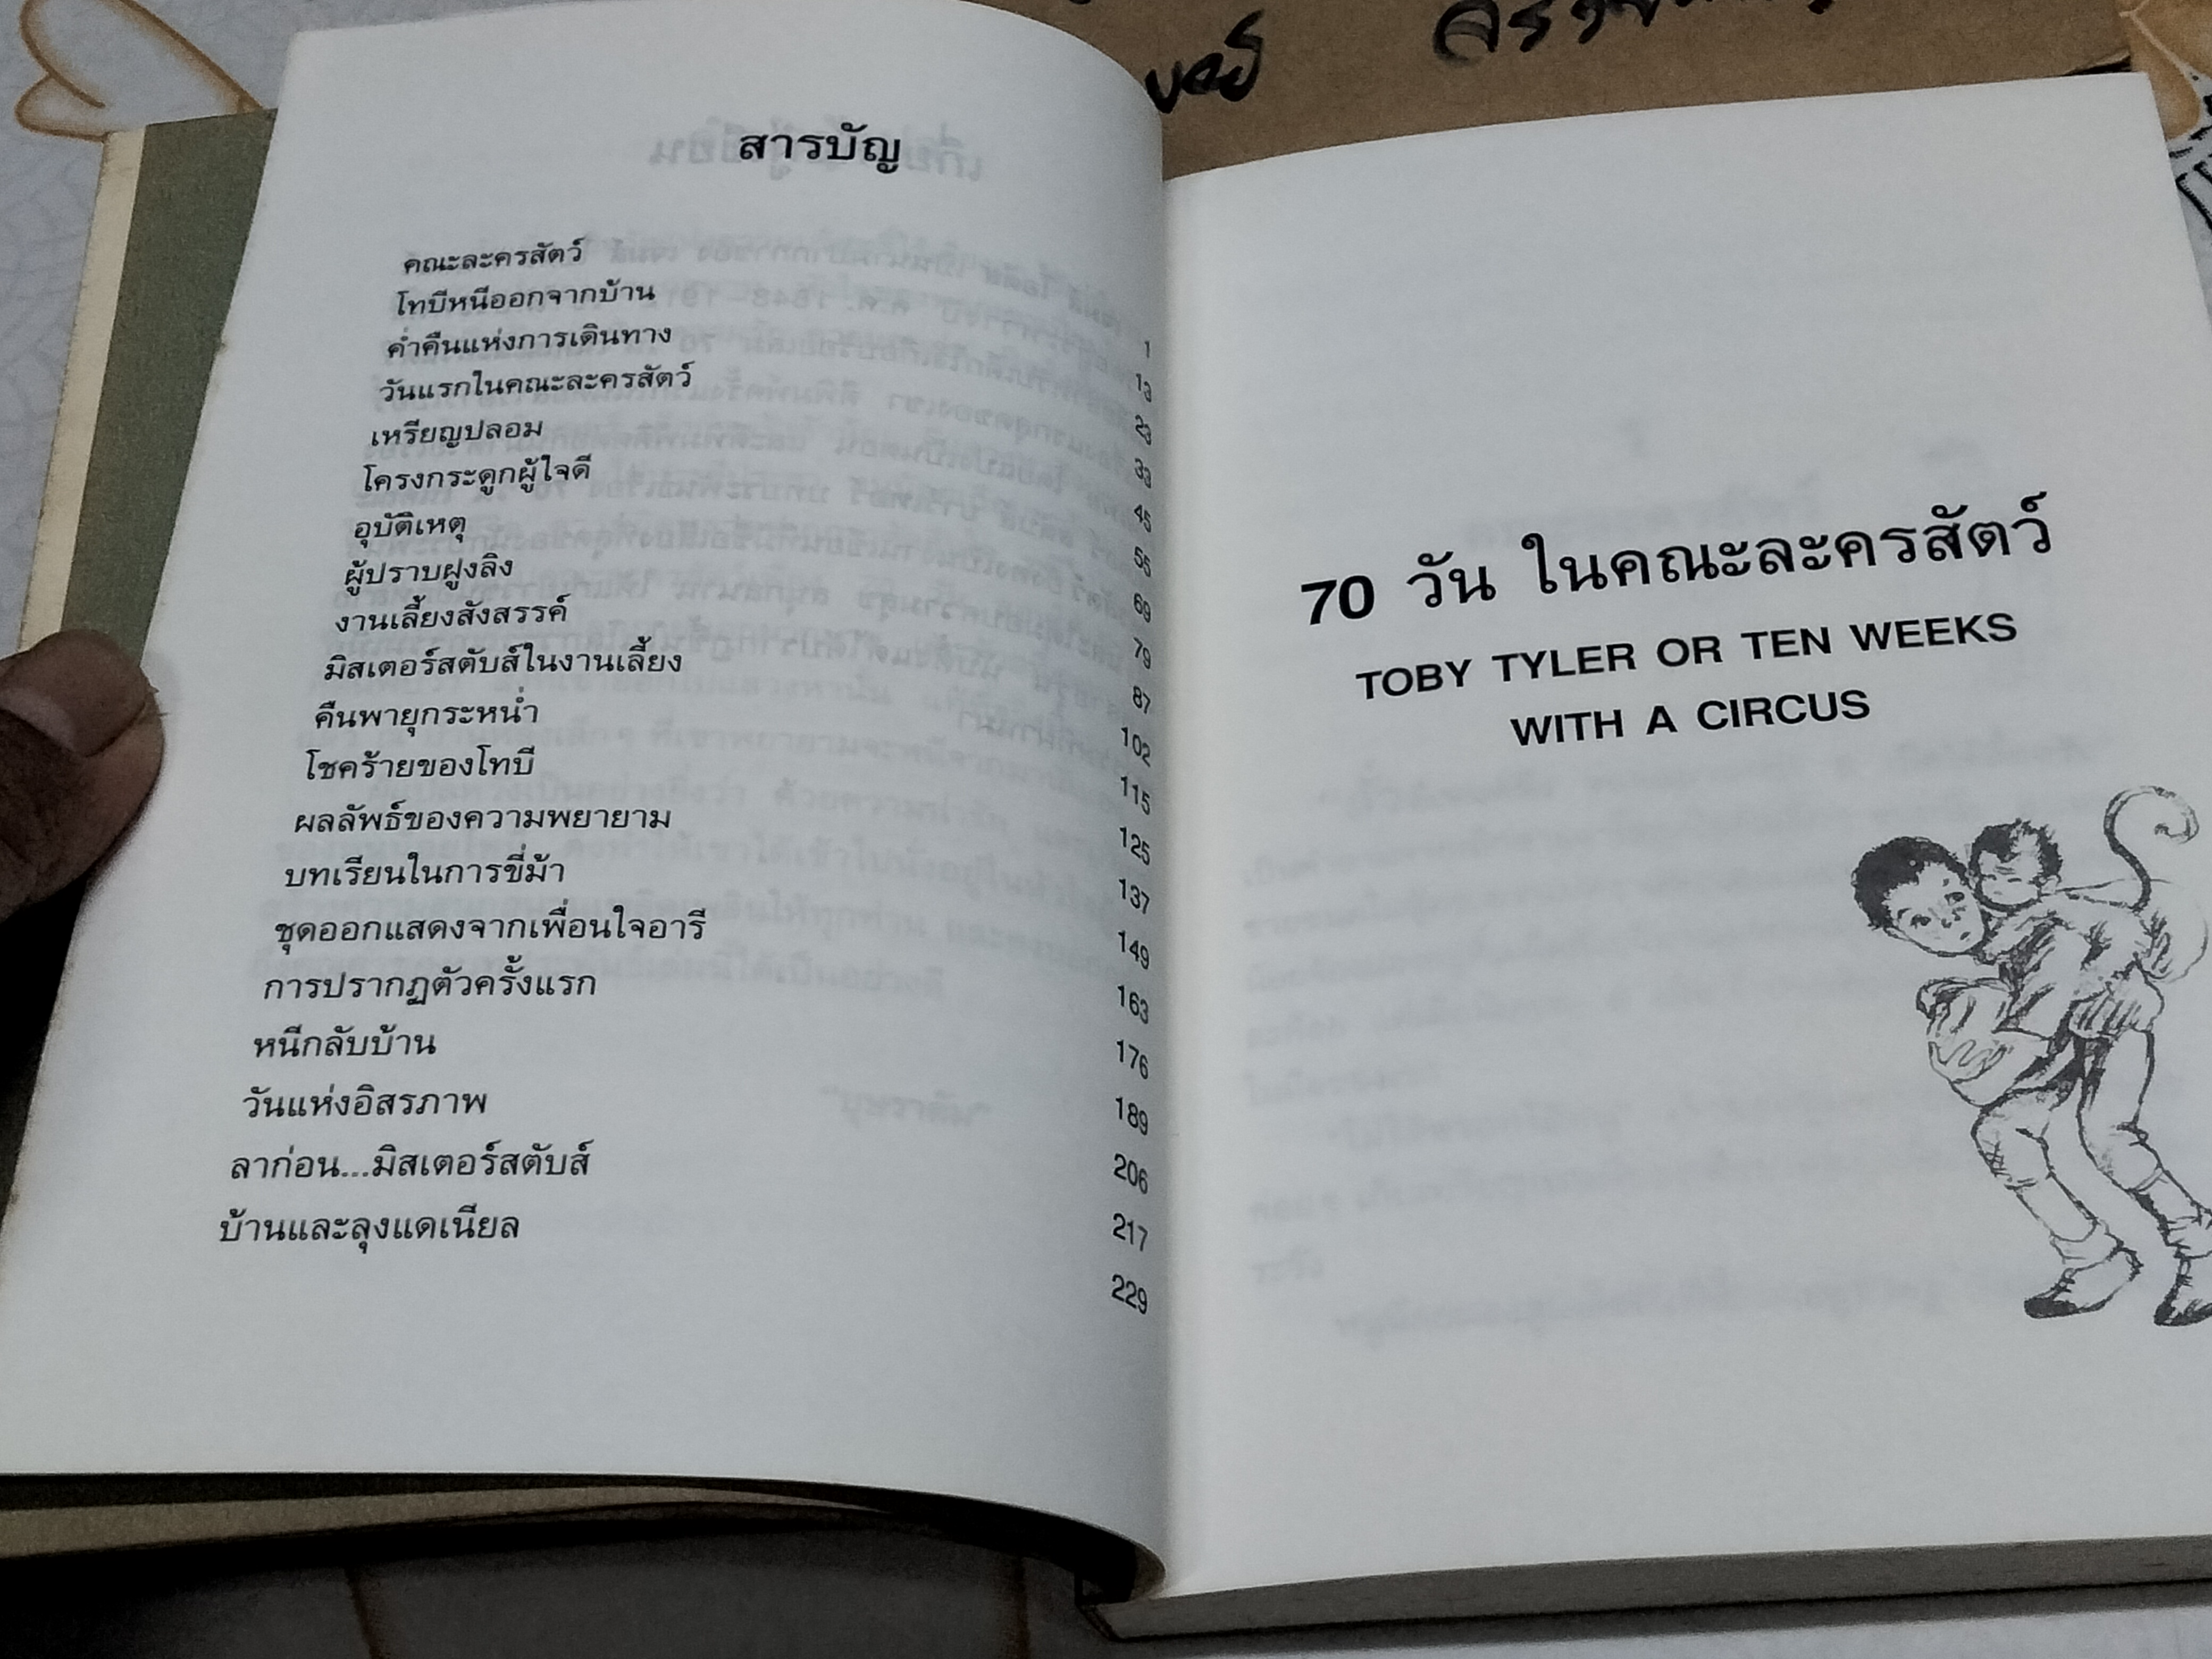 สารบัญ
คณะละครสัตว์ 1
โทบีหนีออกจากบ้าน 13
ค่ำคืนแห่งการเดินทาง 23
วันแรกในคณะละครสัตว์ 33
เหรียญปลอม 45
โครงกระดูกผู้ใจดี 55
อุบัติเหตุ 69
ผู้ปราบฝูงลิง 79
งานเลี้ยงสังสรรค์ 87
มิสเตอร์สตับส์ในงานเลี้ยง 102
คืนพายุกระหน่ำ 115
โชคร้ายของโทบี 125
ผลลัพธ์ของความพยายาม 137
บทเรียนในการขี่ม้า 149
ชุดออกแสดงจากเพื่อนใจอารี 163
การปรากฏตัวครั้งแรก 176
หนีกลับบ้าน 189
วันแห่งอิสรภาพ 206
ลาก่อน...มิสเตอร์สตับส์ 217
บ้านและลุงแดเนียล 229
70 วัน ในคณะละครสัตว์
TOBY TYLER OR TEN WEEKS
WITH A CIRCUS